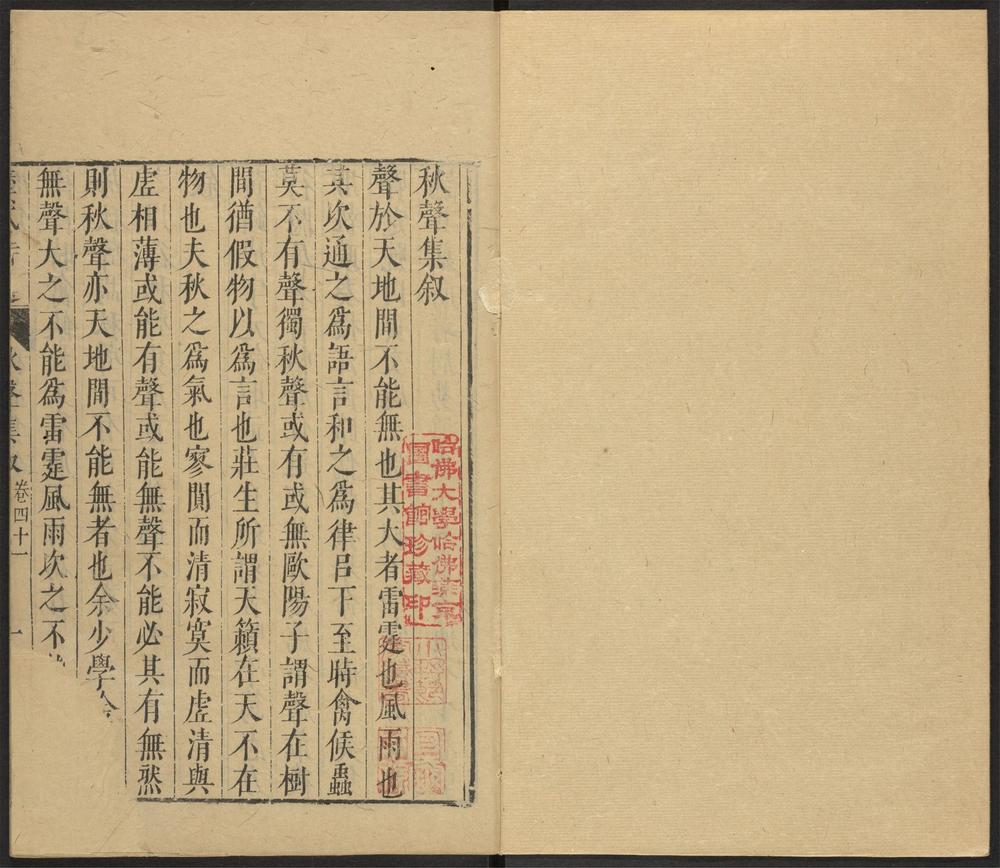 秋聲集叙
聲於天地間不能無也其大者雷霆也風雨也
其次通之爲語言和之爲律吕下至時禽候蟲
莫不有聲獨秋聲或有或無歐陽子謂聲在樹
間猶假物以爲言也莊生所謂天籟在天不在
物也夫秋之爲氣也寥闃而清寂寞而虛清與
虛相薄或能有聲或能無聲不能必其有無然
則秋聲亦天地間不能無者也余少學
無聲大之不能爲雷霆風雨次之不
秋聲集叙 卷四十一 一
哈佛大學哈佛燕京
圖書館珍藏印